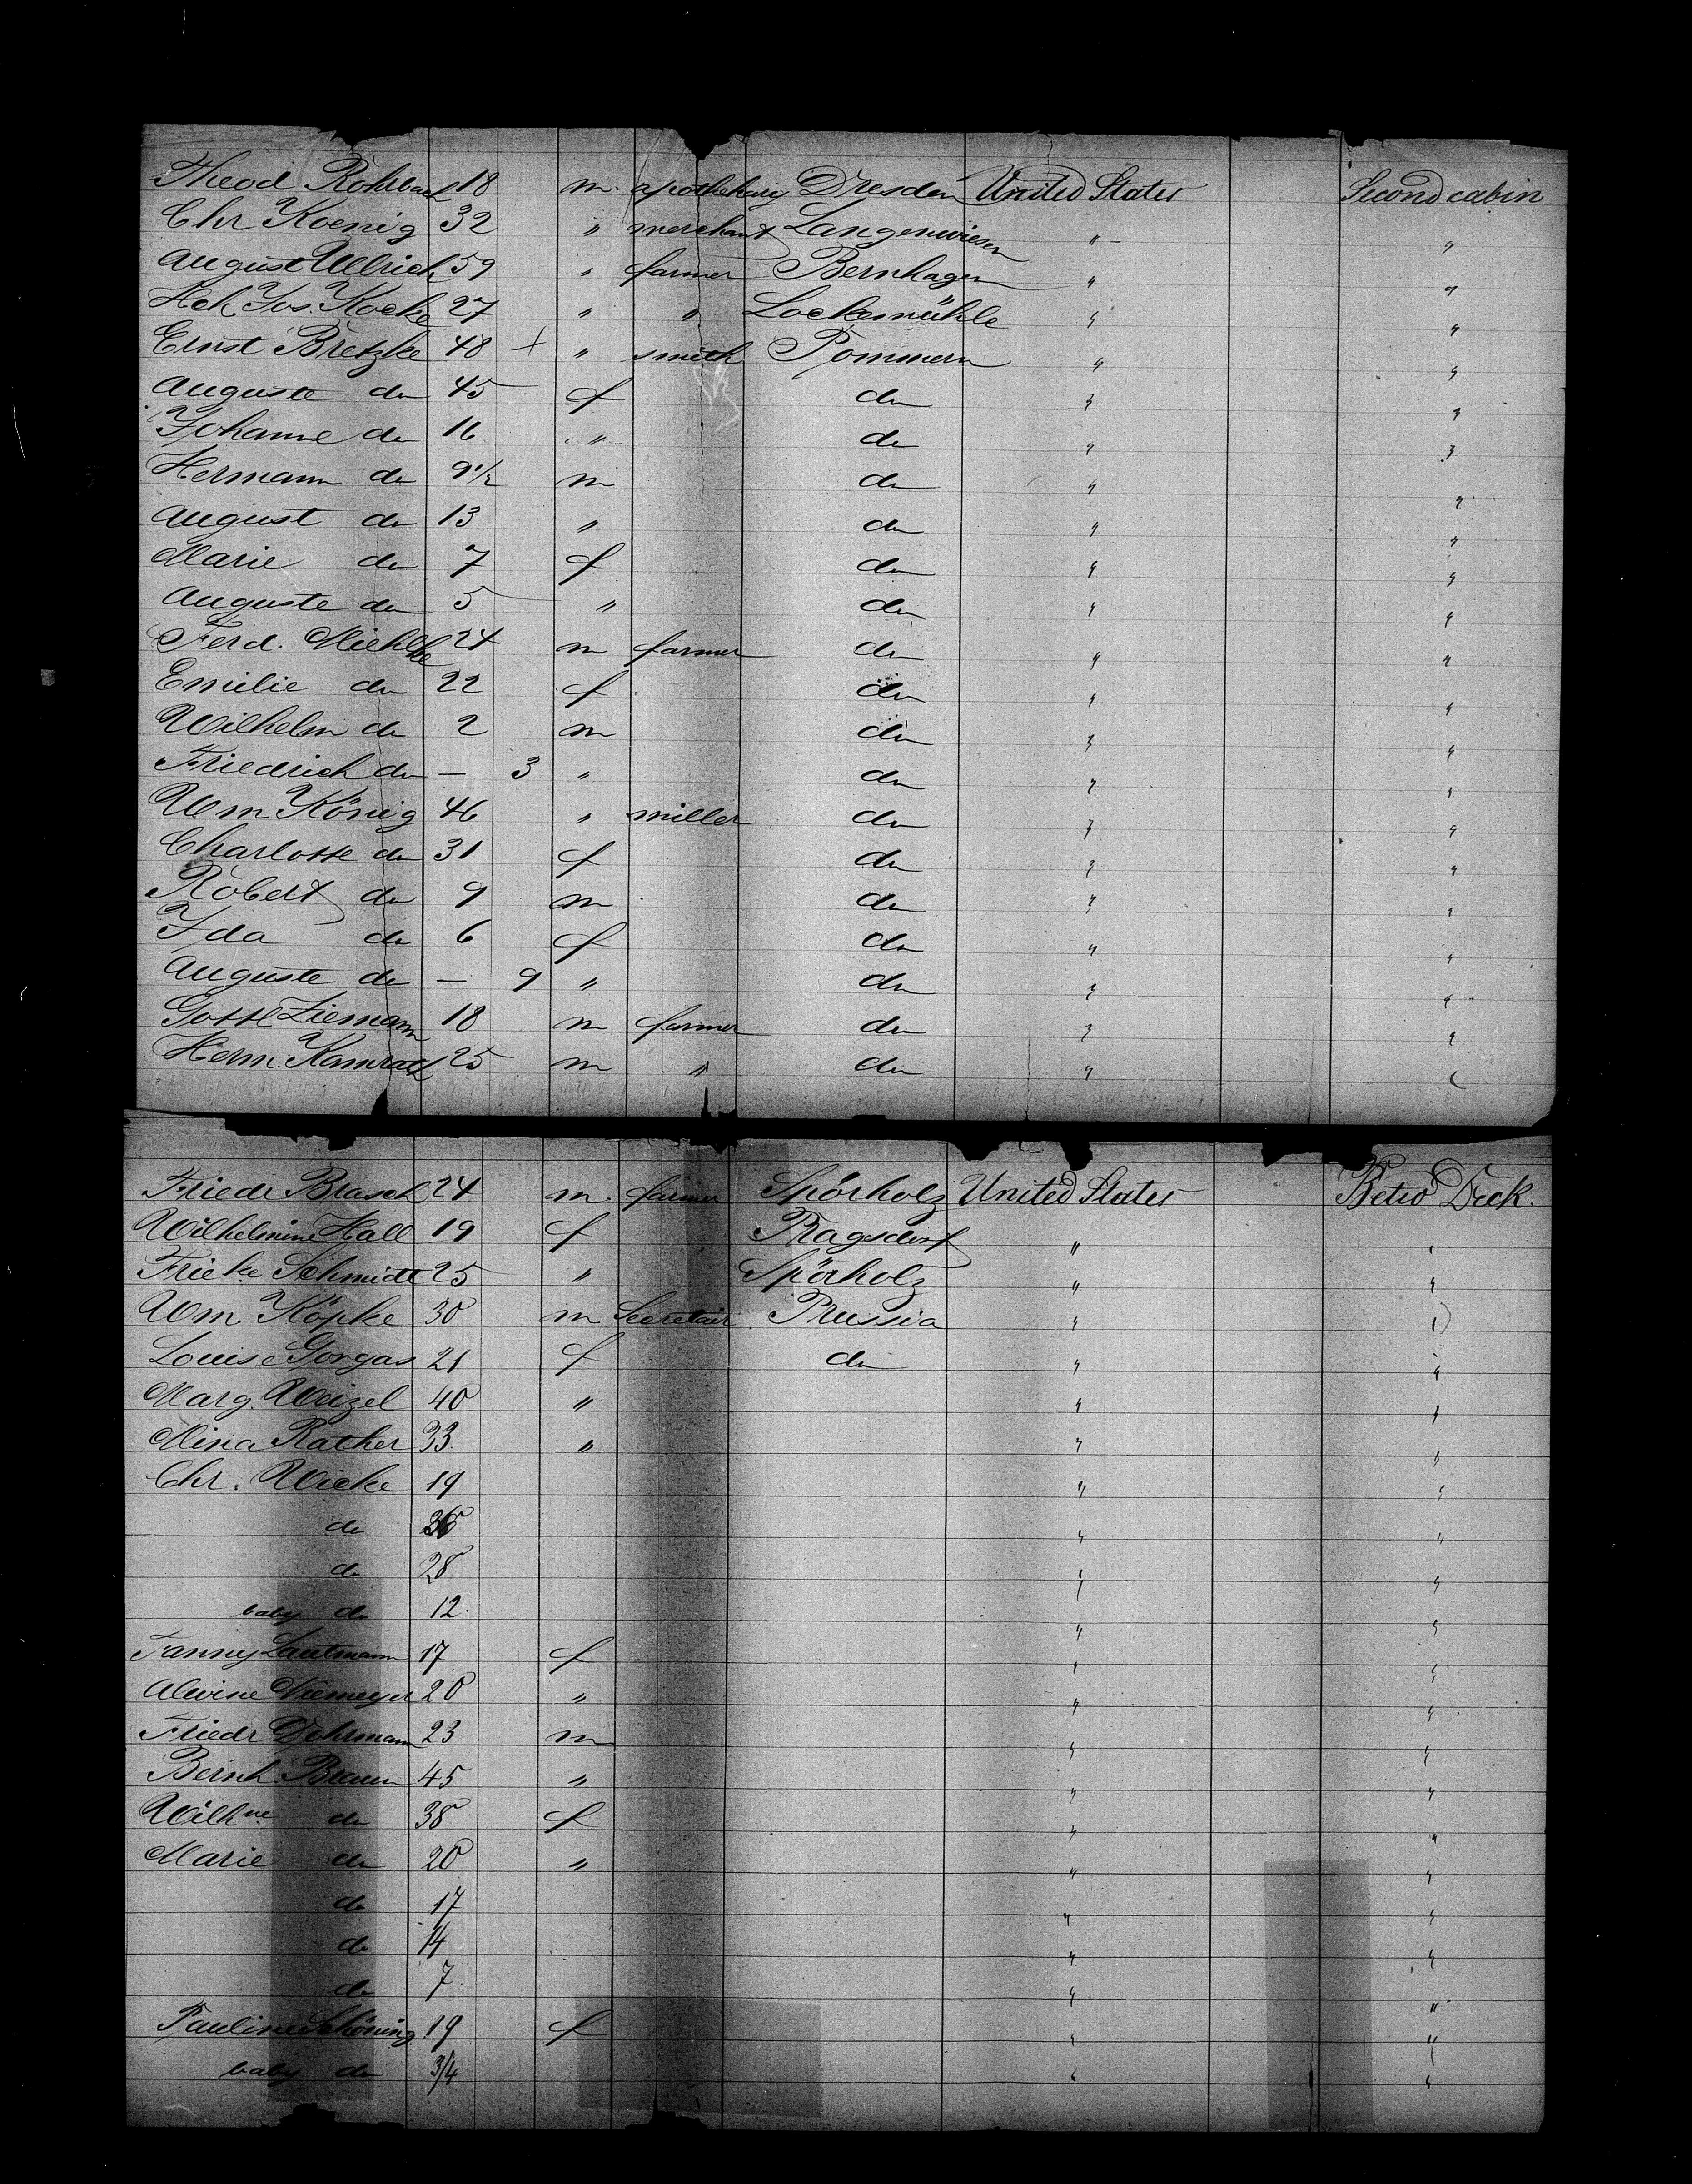 Theod Rohrbach 18 m. apothekary Dresden United States Second cabin
Chr Koenig 32 " merchant Langenwiesen " "
August Ullrich 59 " farmer Bernhagen " "
Hch Jos. Kocke 27 " " Lockemühle " "
Ernst Bretzke 48 + " smith Pommern " "
Auguste do 45 f do " "
Johanne do 16 " do " "
Hermann do 9 1/2 m do " "
August do 13 " do " "
Marie do 7 f do " "
Auguste do 5 " do " "
Ferd. Miehlke 24 m farmer do " "
Emilie do 22 f do " "
Wilhelm do 2 m do " "
Friedrich do — 3 " do " "
Wm König 46 " miller do " "
Charlotte do 31 f do " "
Robert do 9 m do " "
Ida do 6 f do " "
Auguste do — 9 " do " "
Gottl Ziemann 18 m farmer do " "
Herm. Kamrath 25 m " do " "
Friedr Brasch 24 m. farmer Spörholz United States Betw Deck.
Wilhelmine Hall 19 f Ragsdorf " "
Frieke Schmidt 25 " Spörholz " "
Wm Köpke 30 m Secretair Prussia " "
Louise Gorgas 21 f do " "
Marg. Weizel 40 " " "
Mina Rather 33. " " "
Chr. Wicke 19 " "
do " "
do 28 " "
baby do 12. " "
Fanny Lautmann 17 f " "
Alwine Niemeyer 20 " " "
Friedr Dohrmann 23 m " "
Bernh. Braun 45 " " "
Wilhne do 38 f " "
Marie do 20 " " "
do 17 " "
do 14 " "
do 7 " "
Pauline Schöning 19 f " "
baby do 3/4 " "